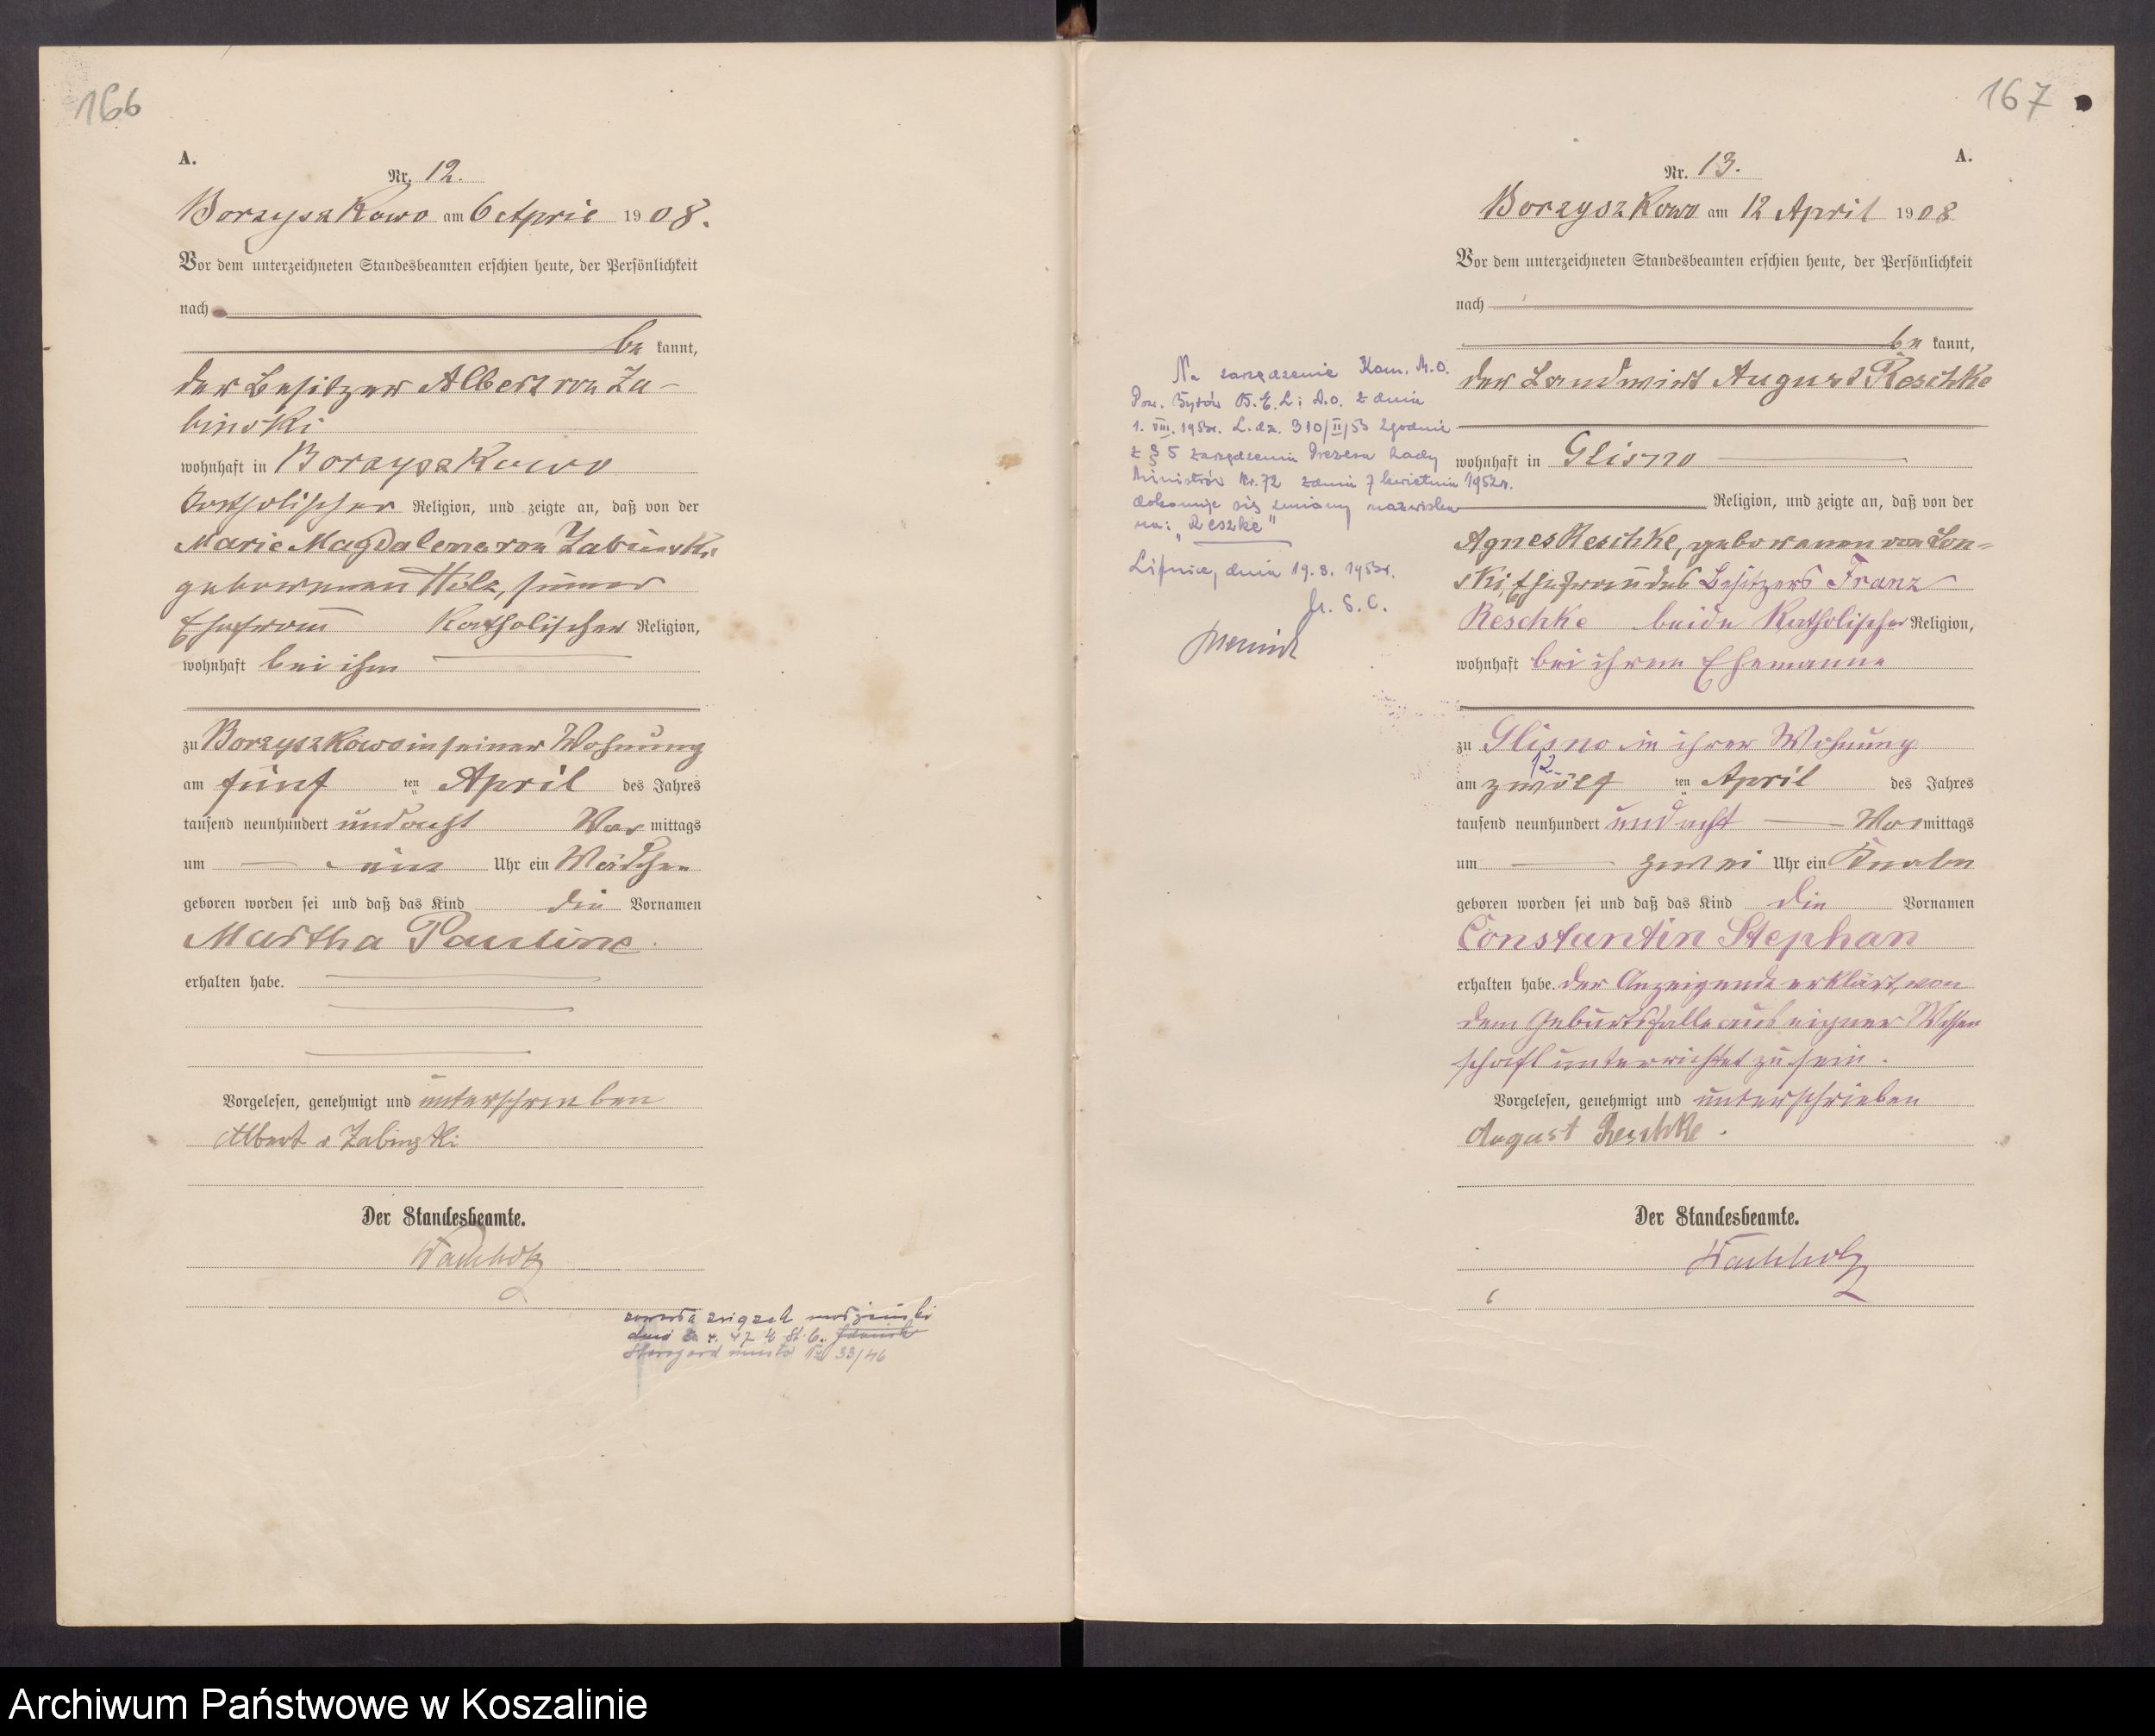 166
A.
Nr. 12.
Borzyszkowo am 6 April 1908.
Vor dem unterzeichneten Standesbeamten erschien heute, der Persönlichkeit
nach
be kannt,
der Besitzer Albert von Za-
binski
wohnhaft in Borzyszkowo
katholischer Religion, und zeigte an, daß von der
Marie Magdalena von Zabinski
geborenen Hilz, seiner
Ehefrau katholischer Religion,
wohnhaft bei ihm
zu Borzyszkowo in seiner Wohnung
am fünf ten April des Jahres
tausend neunhundert und acht Vor mittags
um ein Uhr ein Mädchen
geboren worden sei und daß das Kind die Vornamen
Martha Pauline
erhalten habe.
Vorgelesen, genehmigt und unterschrieben
Albert v Zabinski
Der Standesbeamte.
Wachholz
zawarła związek małżeński
dnia 47
Stargard 33/46
167
A.
Nr. 13.
Borzyszkowo am 12 April 1908
Vor dem unterzeichneten Standesbeamten erschien heute, der Persönlichkeit
nach
be kannt,
der Landwirt August Reschke
wohnhaft in Glisno
Religion, und zeigte an, daß von der
Agnes Reschke, geborenen von Lon-
ski, Ehefrau des Besitzers Franz
Reschke beide katholischer Religion,
wohnhaft bei ihrem Ehemanne
zu Glisno in ihrer Wohnung
12
am zwölf ten April des Jahres
tausend neunhundert und acht Vor mittags
um zwei Uhr ein Knabe
geboren worden sei und daß das Kind die Vornamen
Constantin Stephan
erhalten habe. der Anzeigende erklärt, von
dem Geburtsfalle aus eigner Wissen
schaft unterrichtet zu sein.
Vorgelesen, genehmigt und unterschrieben
August Reschke.
Der Standesbeamte.
Wachholz
Na zarządzenie Kom. M.O.
Pow. Bytów B.E.L i D.O. z dnia
1. VIII. 1953r. L.dz. 310/II/53 zgodnie
z § 5 zarządzenia Prezesa Rady
Ministrów Nr. 72 z dnia 7 kwietnia 1952r.
dokonuje się zmiany nazwiska
na: „Reszke"
Lipnica, dnia 19.8.1953r.
U.S.C.
Archiwum Państwowe w Koszalinie